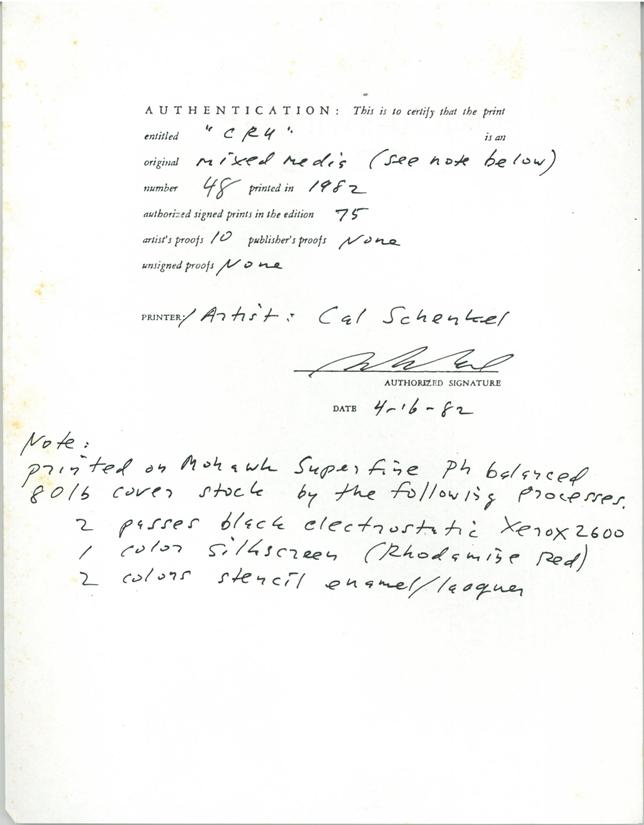 AUTHENTICATION: This is to certify that the print
entitled "CRY" is an
original mixed media (see note below)
number 48 printed in 1982
authorized signed prints in the edition 75
artist's proofs 10 publisher's proofs None
unsigned proofs None
PRINTER/Artist: Cal Schenkel
AUTHORIZED SIGNATURE
DATE 4-16-82
Note:
printed on Mohawk Superfine Ph balanced
80lb cover stock by the following processes.
2 passes black electrostatic Xerox 2600
1 color silkscreen (Rhodamine Red)
2 colors stencil enamel/laquer